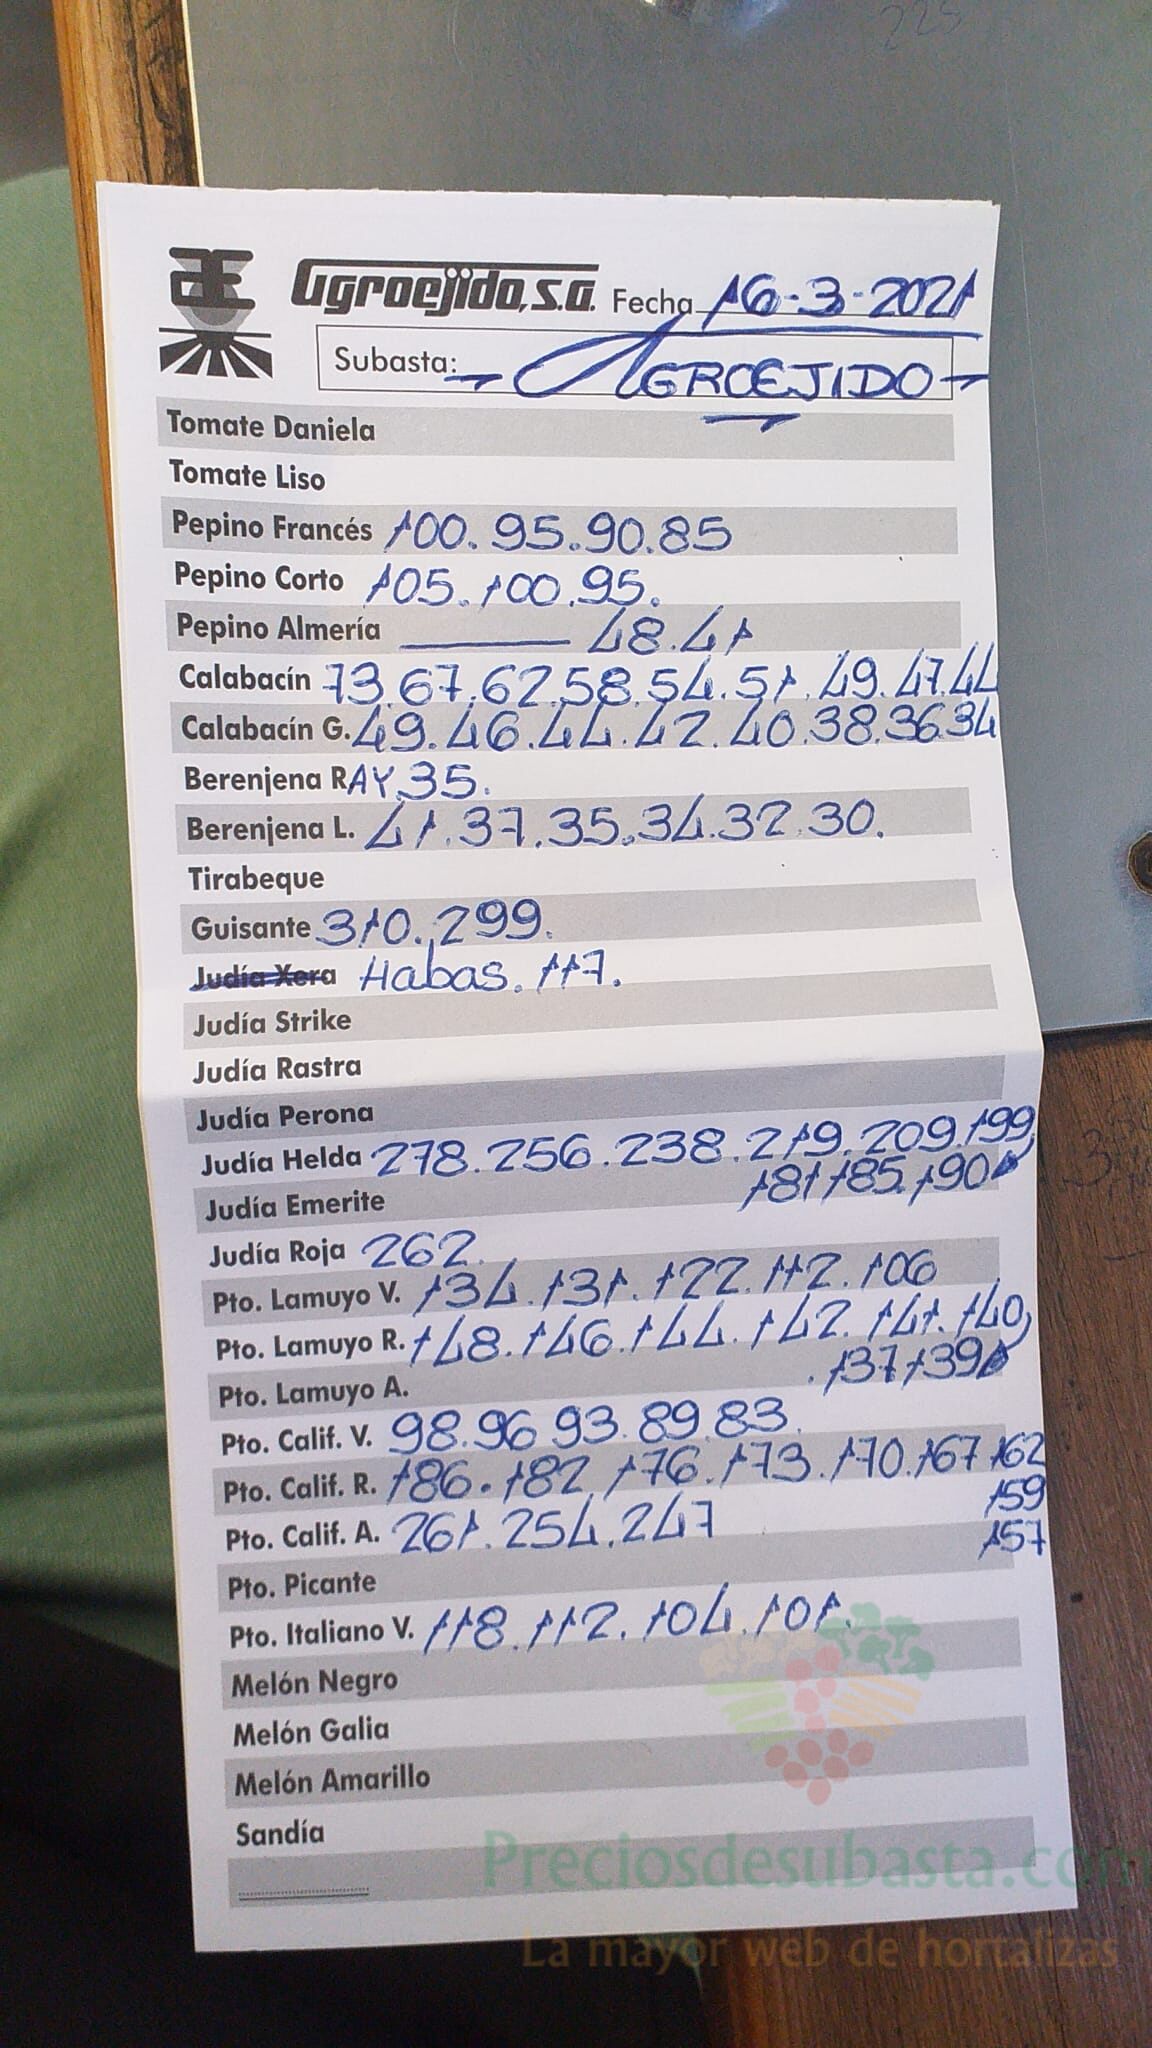 Agroejido, S.A. Fecha 16-3-2021
Subasta: AGROEJIDO
Tomate Daniela
Tomate Liso
Pepino Francés 100.95.90.85
Pepino Corto 105.100.95.
Pepino Almería 48.41
Calabacín 73.67.62.58.54.51.49.47.44
Calabacín G. 49.46.44.42.40.38.36.34
Berenjena RAY.35.
Berenjena L. 41.37.35.34.32.30.
Tirabeque
Guisante 310.299.
Judía Xera Habas. 117.
Judía Strike
Judía Rastra
Judía Perona
Judía Helda 278.256.238.219.209.199
181 185.190
Judía Emerite
Judía Roja 262.
Pto. Lamuyo V. 134.131.122.112.106
Pto. Lamuyo R. 148.146.144.142.141.140
.137 139
Pto. Lamuyo A.
Pto. Calif. V. 98.96 93.89.83.
Pto. Calif. R. 186.182.176.173.170.167 162
159
Pto. Calif. A. 261.254.247
157
Pto. Picante
Pto. Italiano V. 118.112.104.101.
Melón Negro
Melón Galia
Melón Amarillo
Sandía
Preciosdesubasta.com
La mayor web de hortalizas